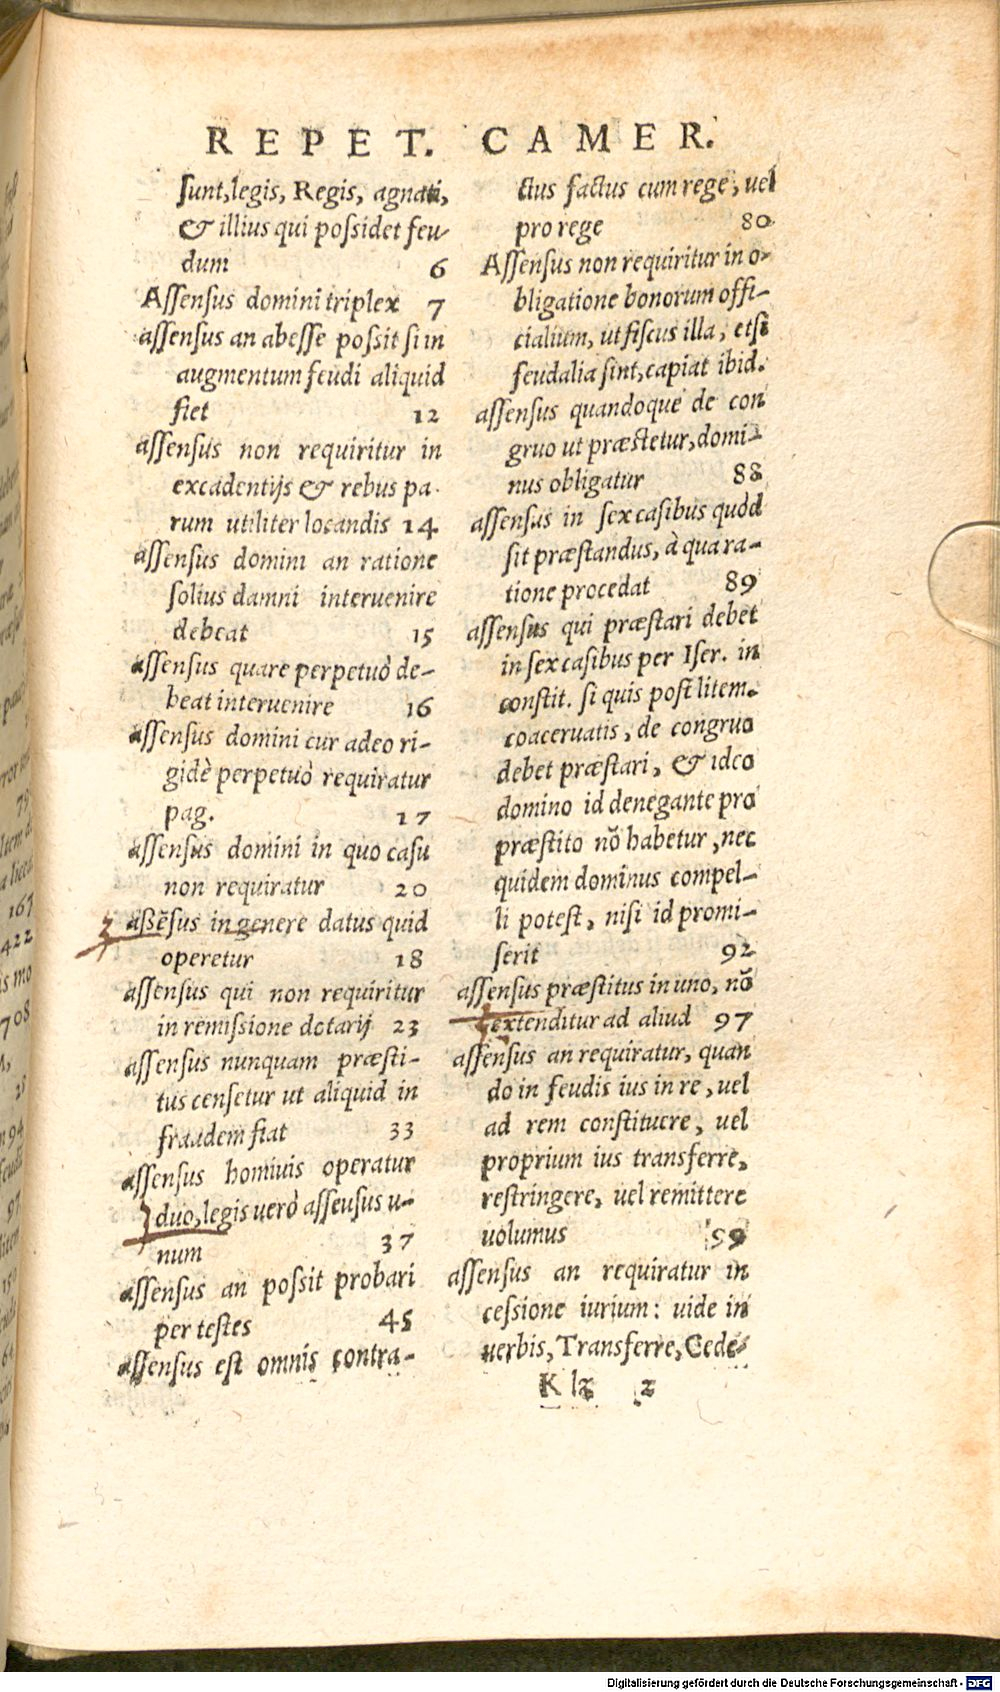 REPET. CAMER.
sunt, legis, Regis, agnati,
& illius qui possidet feu-
dum 6
Assensus domini triplex 7
assensus an abesse possit si in
augmentum feudi aliquid
fiet 12
assensus non requiritur in
excadentijs & rebus pa-
rum utiliter locandis 14
assensus domini an ratione
solius damni interuenire
debeat 15
assensus quare perpetuò de-
beat interuenire 16
assensus domini cur adeo ri-
gidè perpetuò requiratur
pag. 17
assensus domini in quo casu
non requiratur 20
assẽsus in genere datus quid
operetur 18
assensus qui non requiritur
in remissione dotarij 23
assensus nunquam præsti-
tus censetur ut aliquid in
fraudem fiat 33
assensus homiuis operatur
duo, legis uerò asseusus u-
num 37
assensus an possit probari
per testes 45
assensus est omnis contra-
ctus factus cum rege, uel
pro rege 80
Assensus non requiritur in o-
bligatione bonorum offi-
cialium, ut fiscus illa, etsi
feudalia sint, capiat ibid.
assensus quandoque de con
gruo ut præstetur, domi-
nus obligatur 88
assensus in sex casibus quòd
sit præstandus, à qua ra-
tione procedat 89
assensus qui præstari debet
in sex casibus per Iser. in
constit. si quis post litem.
coaceruatis, de congruo
debet præstari, & ideo
domino id denegante pro
præstito nõ habetur, nec
quidem dominus compel-
li potest, nisi id promi-
serit 92
assensus præstitus in uno, nõ
extenditur ad aliud 97
assensus an requiratur, quan
do in feudis ius in re, uel
ad rem constituere, uel
proprium ius transferre,
restringere, uel remittere
uolumus 99
assensus an requiratur in
cessione iurium: uide in
uerbis, Transferre, Cede-
K k 2
Digitalisierung gefördert durch die Deutsche Forschungsgemeinschaft - DFG